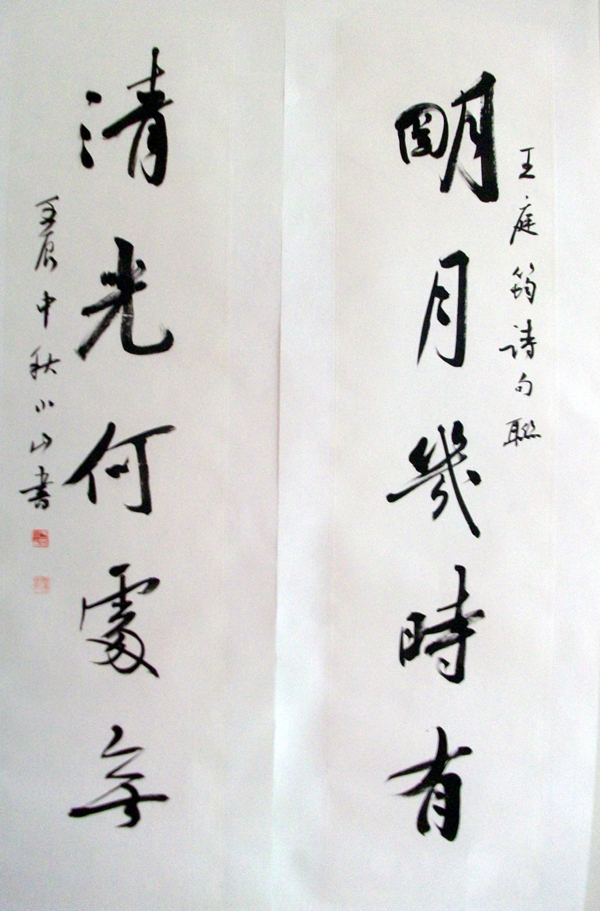 王庭筠詩句聯
明月幾時有
清光何處無
壬辰中秋小山書